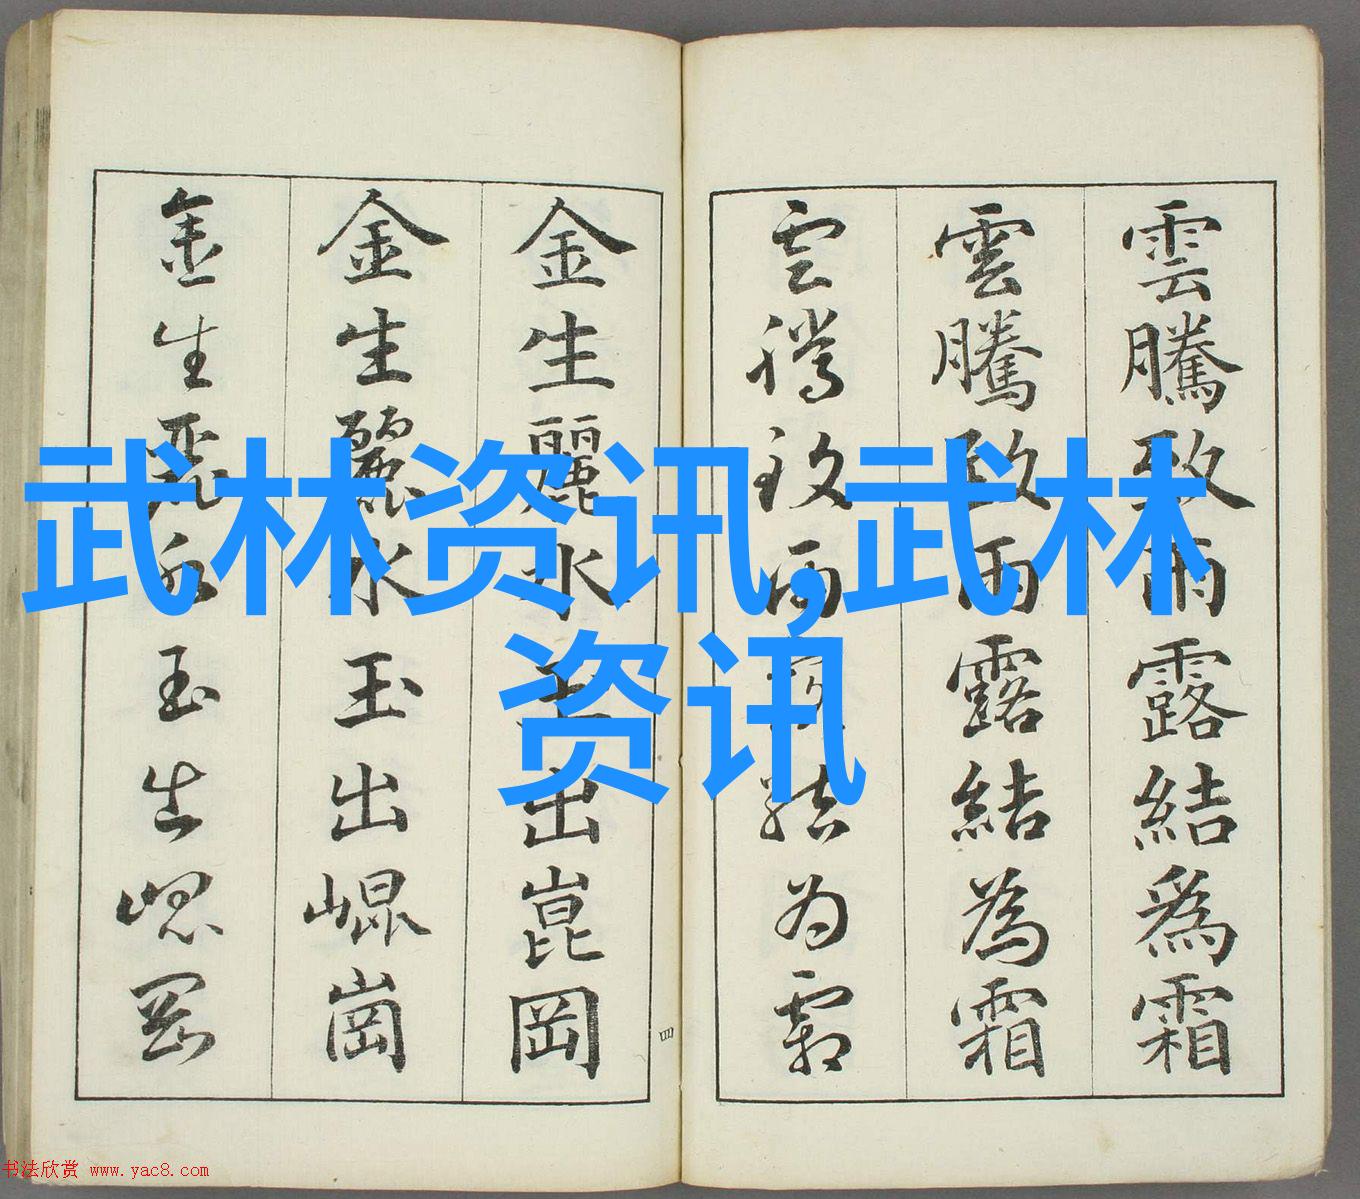 雲騰致雨露結爲霜
雲騰致雨露結為霜
雲騰致雨露結為霜
金生麗水玉出崑岡
金生麗水玉出崐崗
金生麗水玉出崐岡
四
武林资讯,武林
资讯
书法欣赏 www.yac8.com